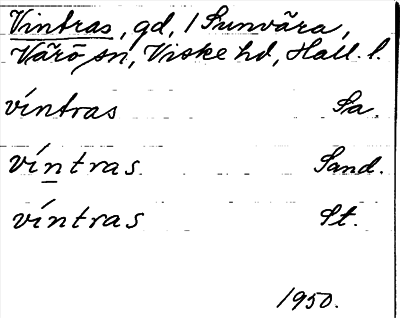 Vintras, gd, 1 Sunvära,
Värö sn, Viske hd, Hall. l.
víntras Sa.
víntras Sand.
víntras St.
1950.